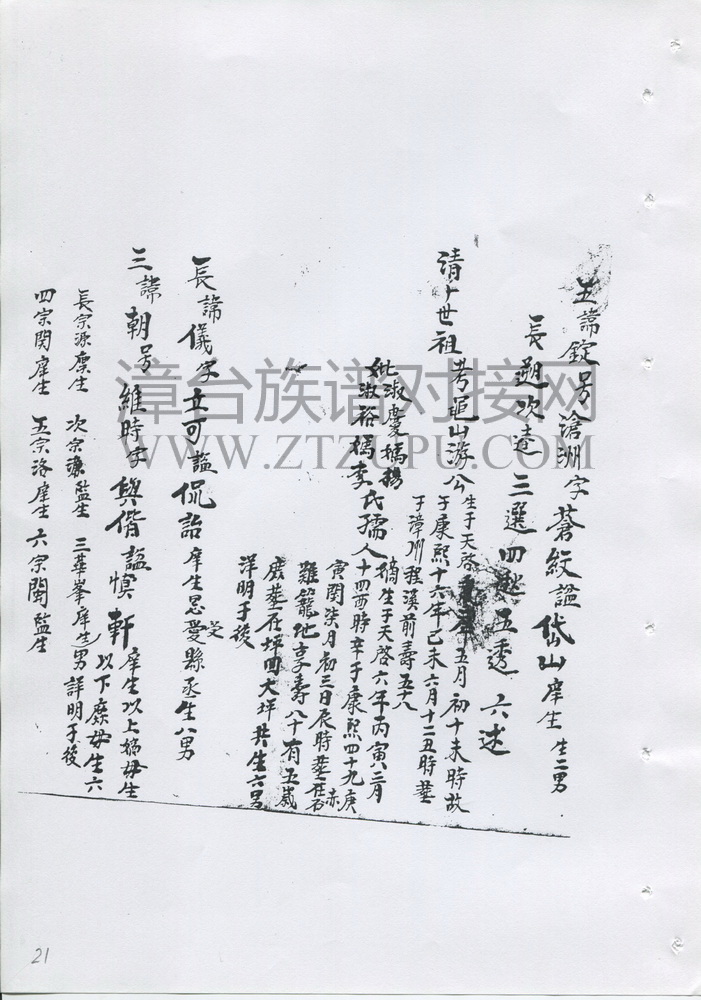 五諱錠号滄洲字蒼紋謚岱山庠生 生二男
長遡次達 三選四 五透六述
清十世祖考 山游公生于天啓 五月初十未時故
于康熙十六年己未六月十二丑時葬
于漳州程溪前壽五十八
妣淑慶媽
妣淑裕媽李氏孺人 生于天啓六年丙寅二月
十四酉時卒于康熙四十九庚
寅閏柒月初三日辰時葬在石赤
雞籠地享壽八十有五歲
葬在坪 大坪共生六男
詳明于後
長諱儀字立可謚侃詒庠生恩受縣丞生八男
三諱朝号維時字與偕謚慎軒庠生以上嫡母生
以下庶母生六男詳明于後
長宗源廩生 次宗濂監生 三華峯庠生
四宗関庠生 五宗洛庠生 六宗閩監生
漳台族谱对接网
WWW.ZTZUPU.COM
21